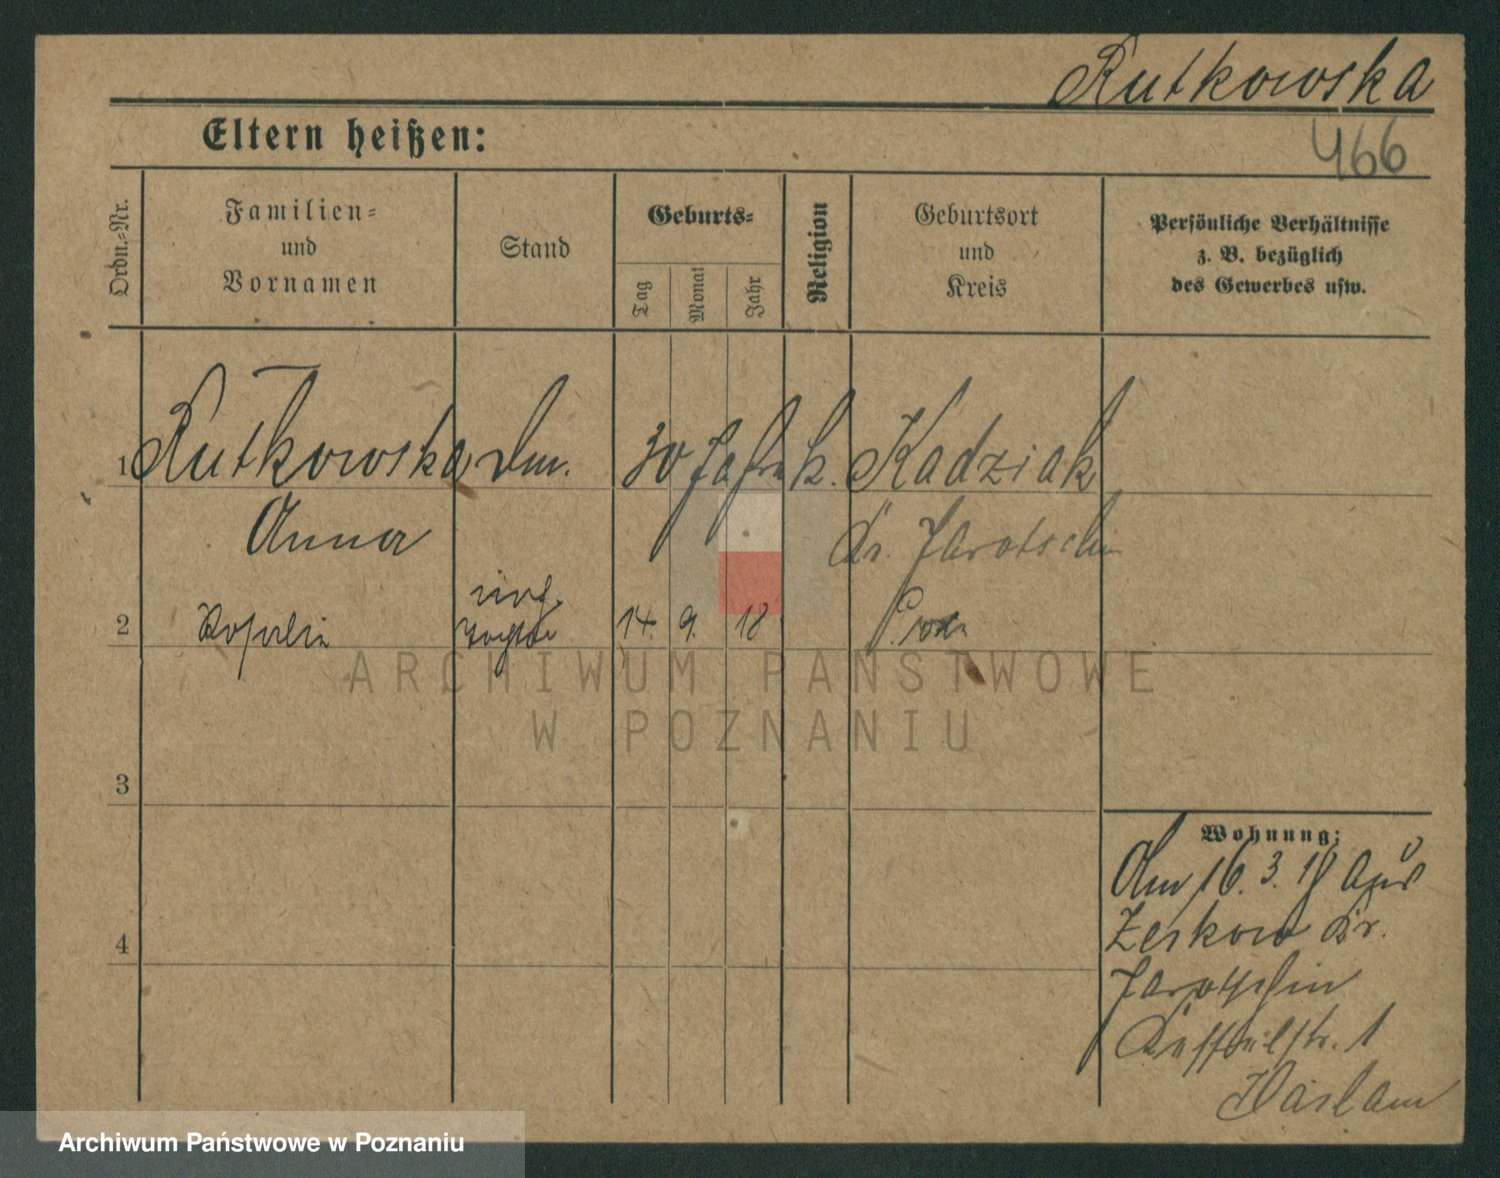 Rutkowska
466
Eltern heißen:
Ordn.-Nr.
Familien-
und
Vornamen
Stand
Geburts-
Tag
Monat
Jahr
Religion
Geburtsort
und
Kreis
Persönliche Verhältnisse
z. B. bezüglich
des Gewerbes usw.
1 Rutkowska 30 Jahre k. Kadziak
Anna Kr. Jarotschin
2 14. 9. 18
ARCHIWUM PAŃSTWOWE
W POZNANIU
3
Wohnung:
Am 16. 3. 18 aus
Zerkow Kr.
4
Jarotschin
1
Archiwum Państwowe w Poznaniu